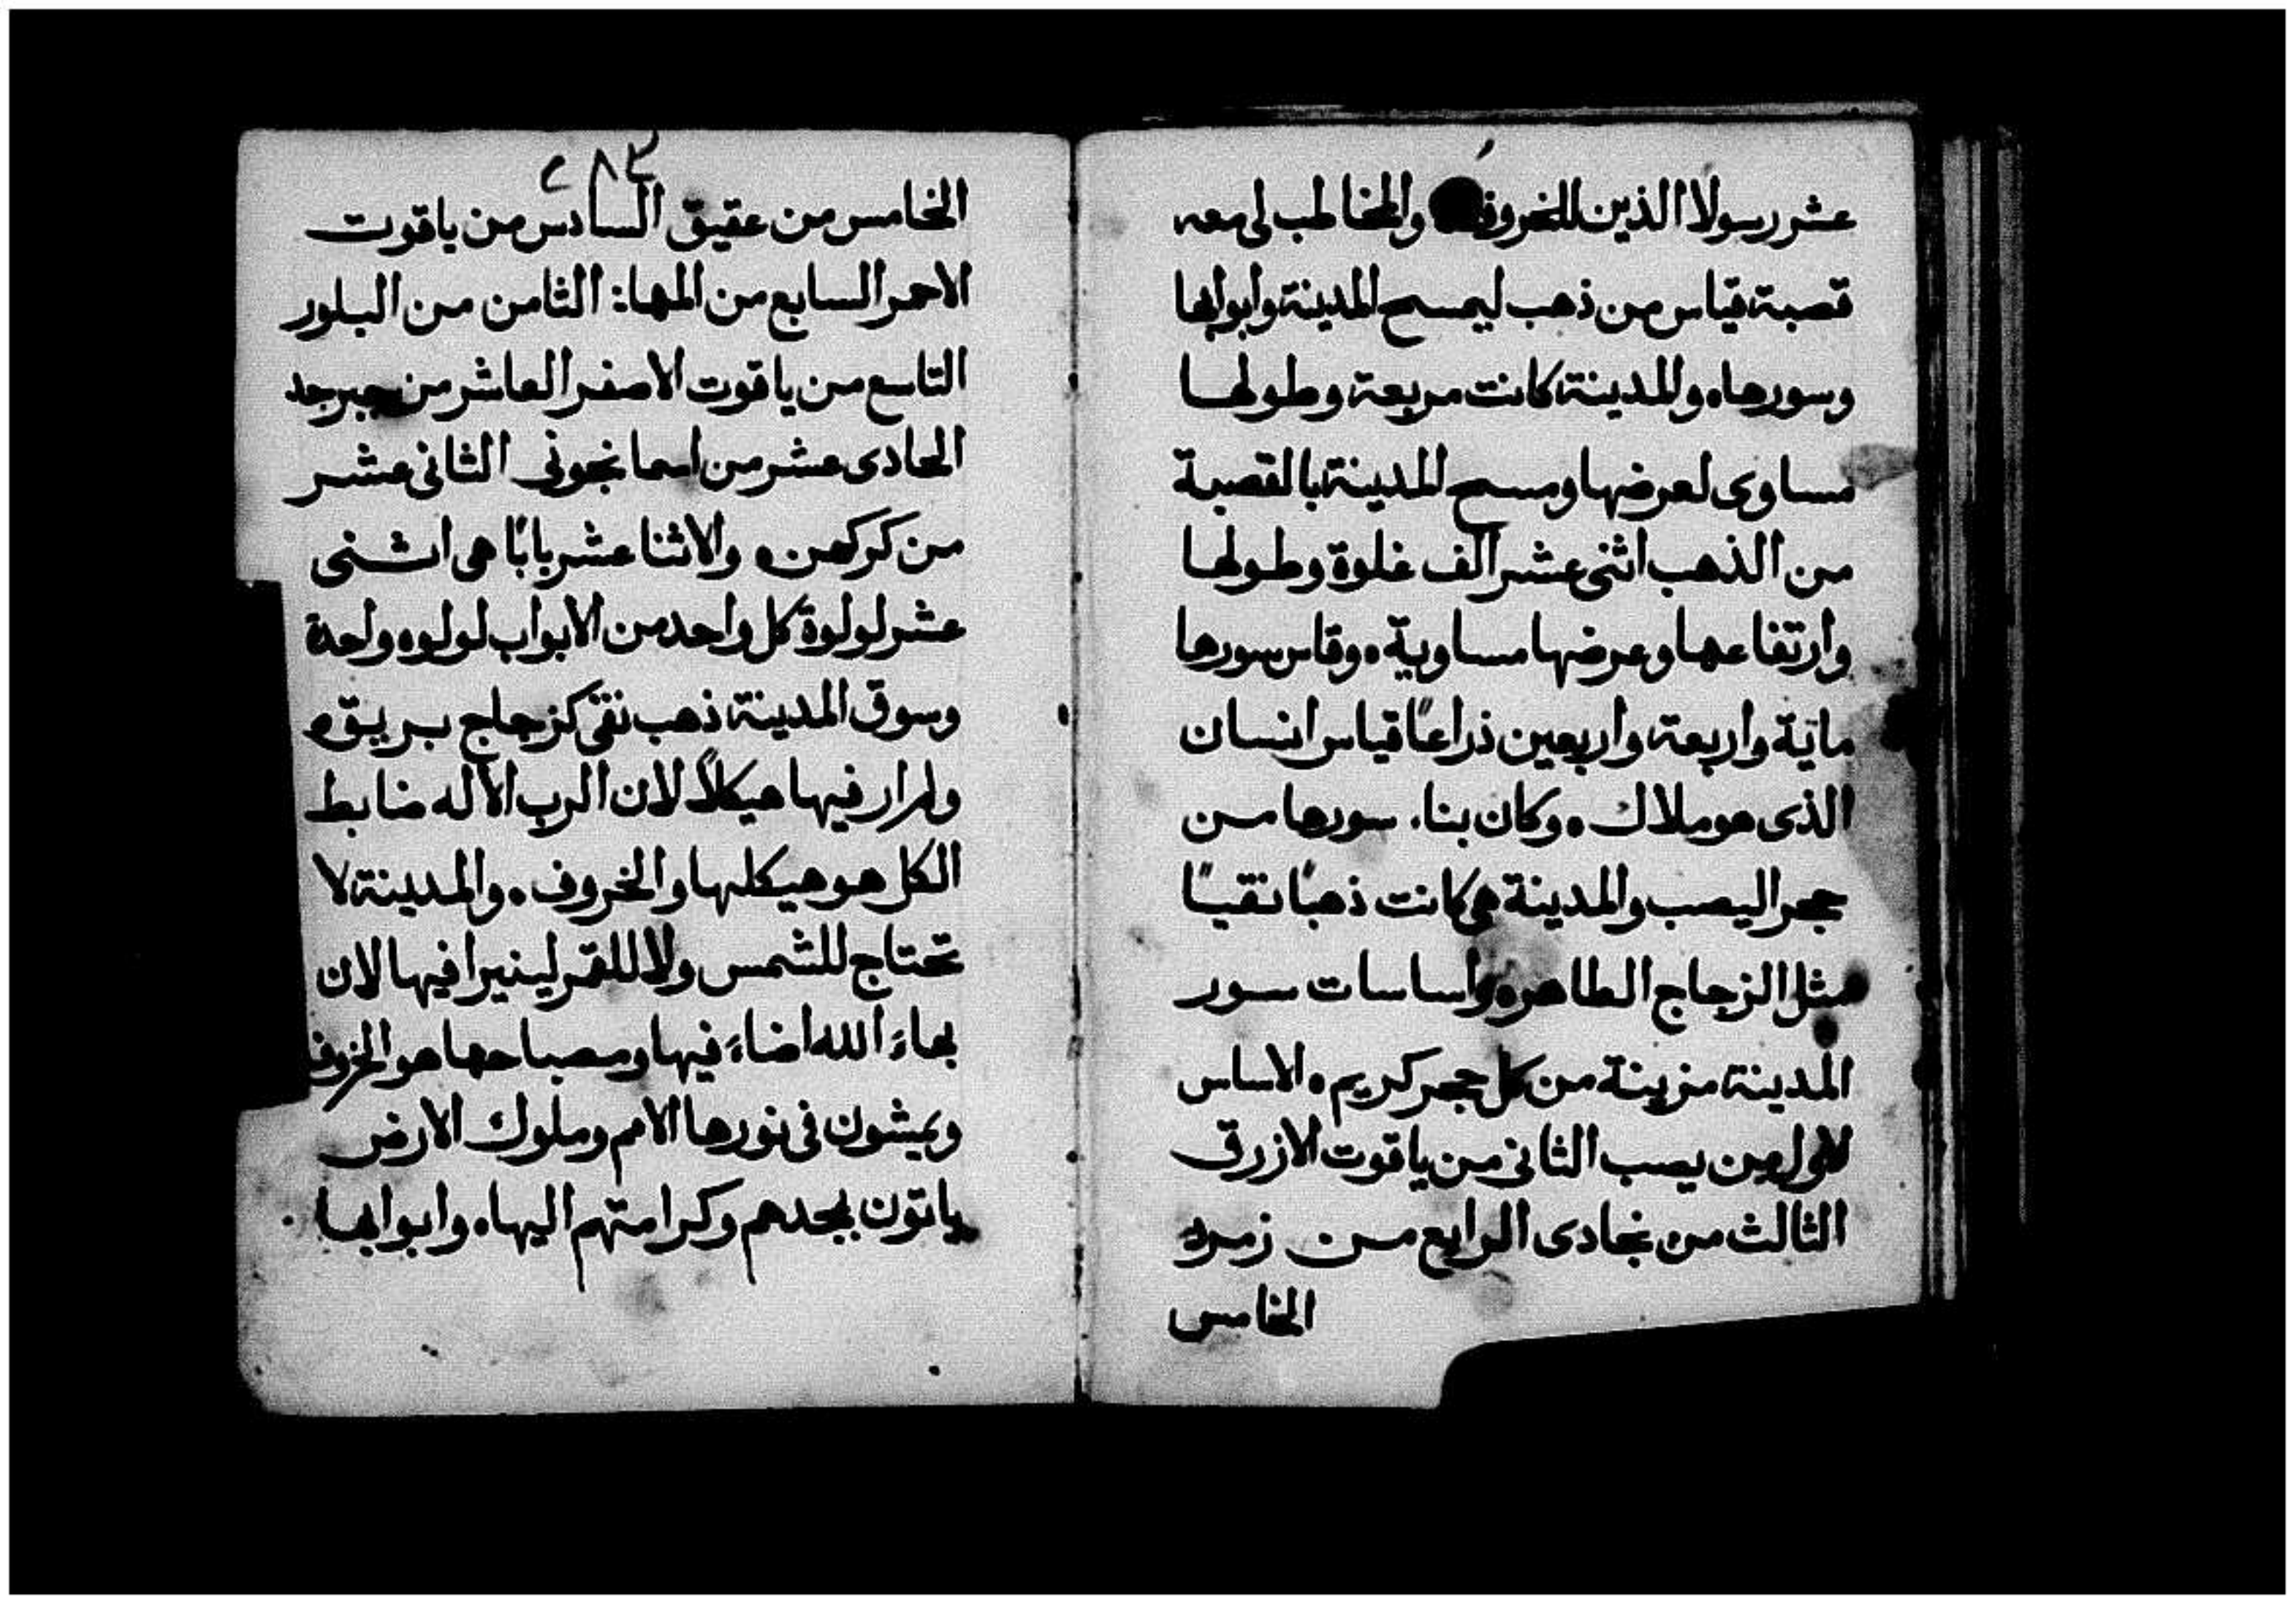 عشر رسولا الذين للخروف والمخاطب لى معه
قصبة قياس من ذهب ليمسح المدينة وابوابها
وسورها ه والمدينة كانت مربعة وطولها
مساوى لعرضها ومسح المدينة بالقصبة
من الذهب اثنى عشر الف غلوة وطولها
وارتفاعها وعرضها مساوية ه وقاس سورها
ماية واربعة واربعين ذراعًا قياس انسان
الذى هو ملاك ه وكان بناء سورها من
حجر اليصب والمدينة هى كانت ذهبًا نقيًا
مثل الزجاج الطاهر ه واساسات سور
المدينة مزينة من كل حجر كريم ه الاساس
الاول من يصب الثانى من ياقوت الازرق
الثالث من نجادى الرابع من زمرد
الخامس
٢٨٣
الخامس من عقيق السادس من ياقوت
الاحمر السابع من المها: الثامن من البلور
التاسع من ياقوت الاصفر العاشر من جبرجد
الحادى عشر من اسمانجونى الثانى عشر
من كركهن ه والاثنا عشر بابًا هى اثنى
عشر لولوة كل واحد من الابواب لولوه واحدة
وسوق المدينة ذهب نقى كزجاج بريق ه
ولم ار فيها هيكلاً لان الرب الاله ضابط
الكل هو هيكلها والخروف ه والمدينة لا
تحتاج للشمس ولا للقمر لينيرا فيها لان
بهاءَ الله اضاءَ فيها ومصباحها هو الخروف
ويمشون فى نورها الامم وملوك الارض
ياتون بمجدهم وكرامتهم اليها ه وابوابها